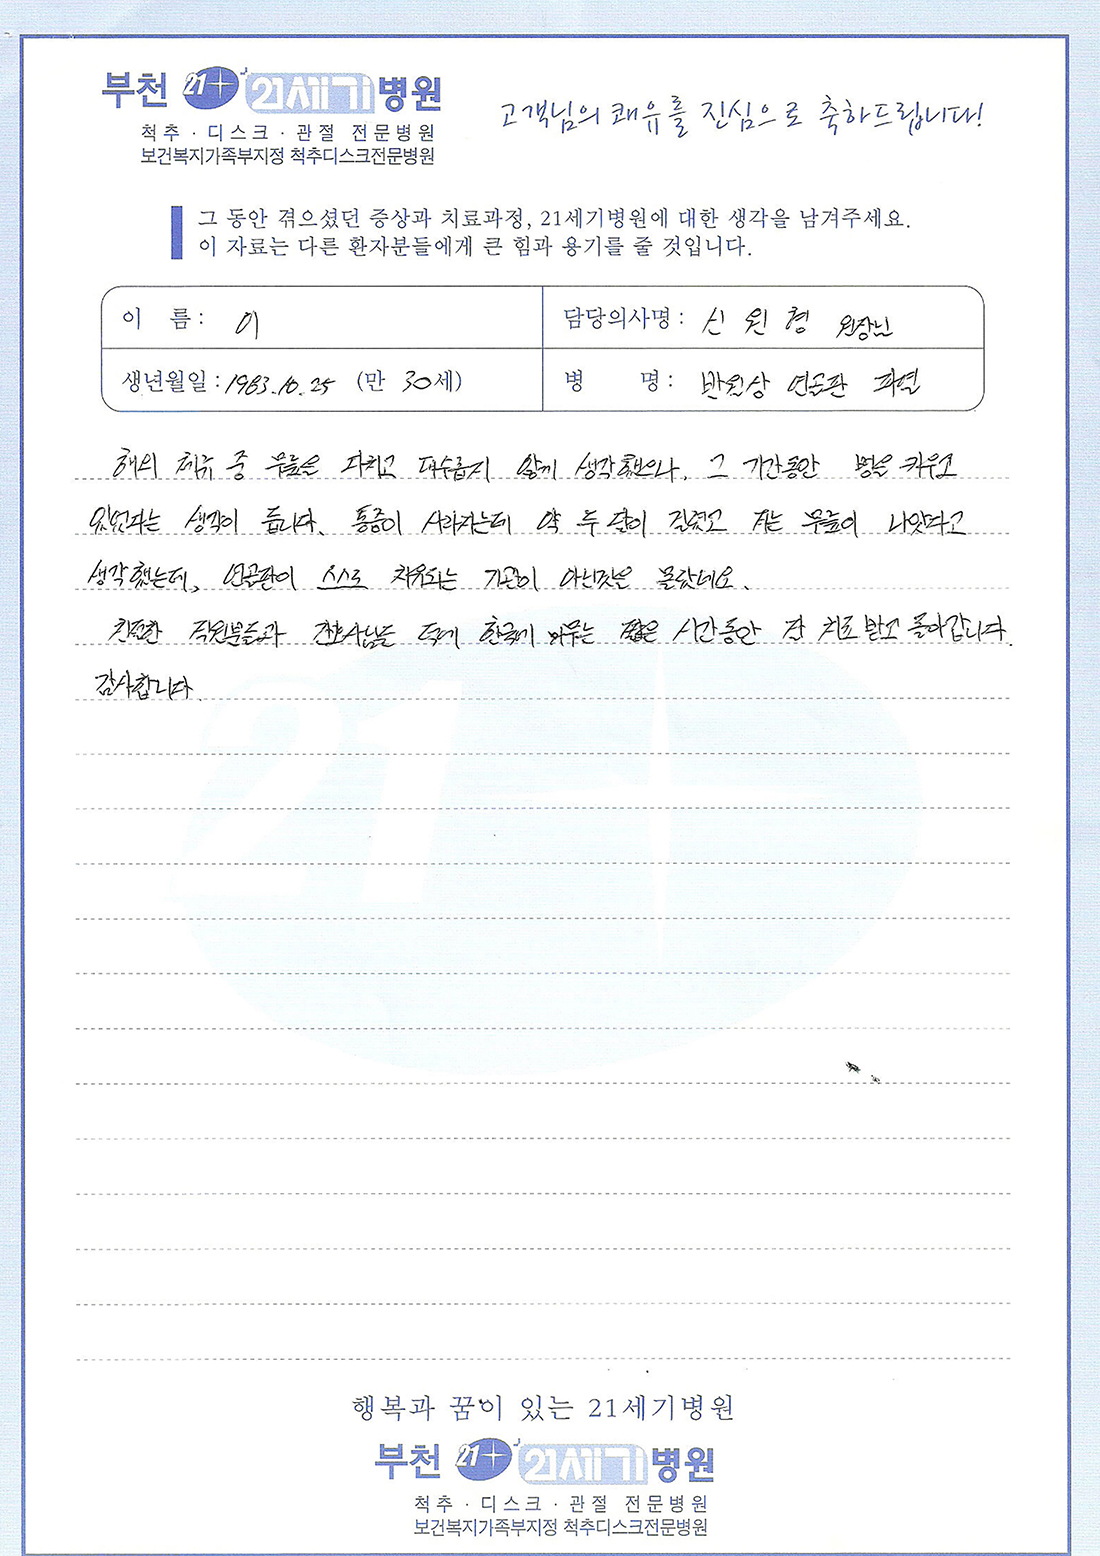 부천 21 21세기 병원
척추 · 디스크 · 관절 전문병원
보건복지가족부지정 척추디스크전문병원
고객님의 쾌유를 진심으로 축하드립니다!
그 동안 겪으셨던 증상과 치료과정, 21세기병원에 대한 생각을 남겨주세요.
이 자료는 다른 환자분들에게 큰 힘과 용기를 줄 것입니다.
이 름 : 이
담당의사명 : 신원형 원장님
생년월일 : 1983.10.25 (만 30세)
병 명 : 반월상 연골판 파열
해외 체류 중 무릎을 다치고 대수롭지 않게 생각했으나, 그 기간동안 병을 키우고
있었다는 생각이 듭니다. 통증이 사라지는데 약 두 달이 걸렸고 저는 무릎이 나았다고
생각했는데, 연골판이 스스로 치유되는 기관이 아닌것은 몰랐네요.
친절한 직원분들과 간호사님들 덕에 한국에 머무는 짧은 시간동안 잘 치료 받고 돌아갑니다.
감사합니다.
21
행복과 꿈이 있는 21세기병원
부천 21 21세기 병원
척추 · 디스크 · 관절 전문병원
보건복지가족부지정 척추디스크전문병원